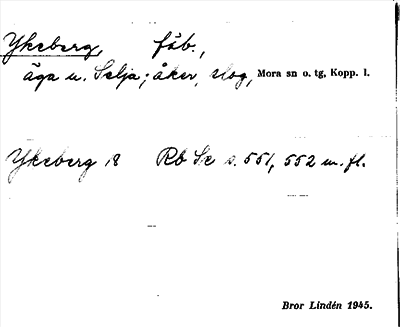 Ykeberg, fäb.,
äga u. Selja; åker, skog, Mora sn o. tg, Kopp. l.
Ykeberg 18 Rb Se s. 551, 552 m. fl.
Bror Lindén 1945.